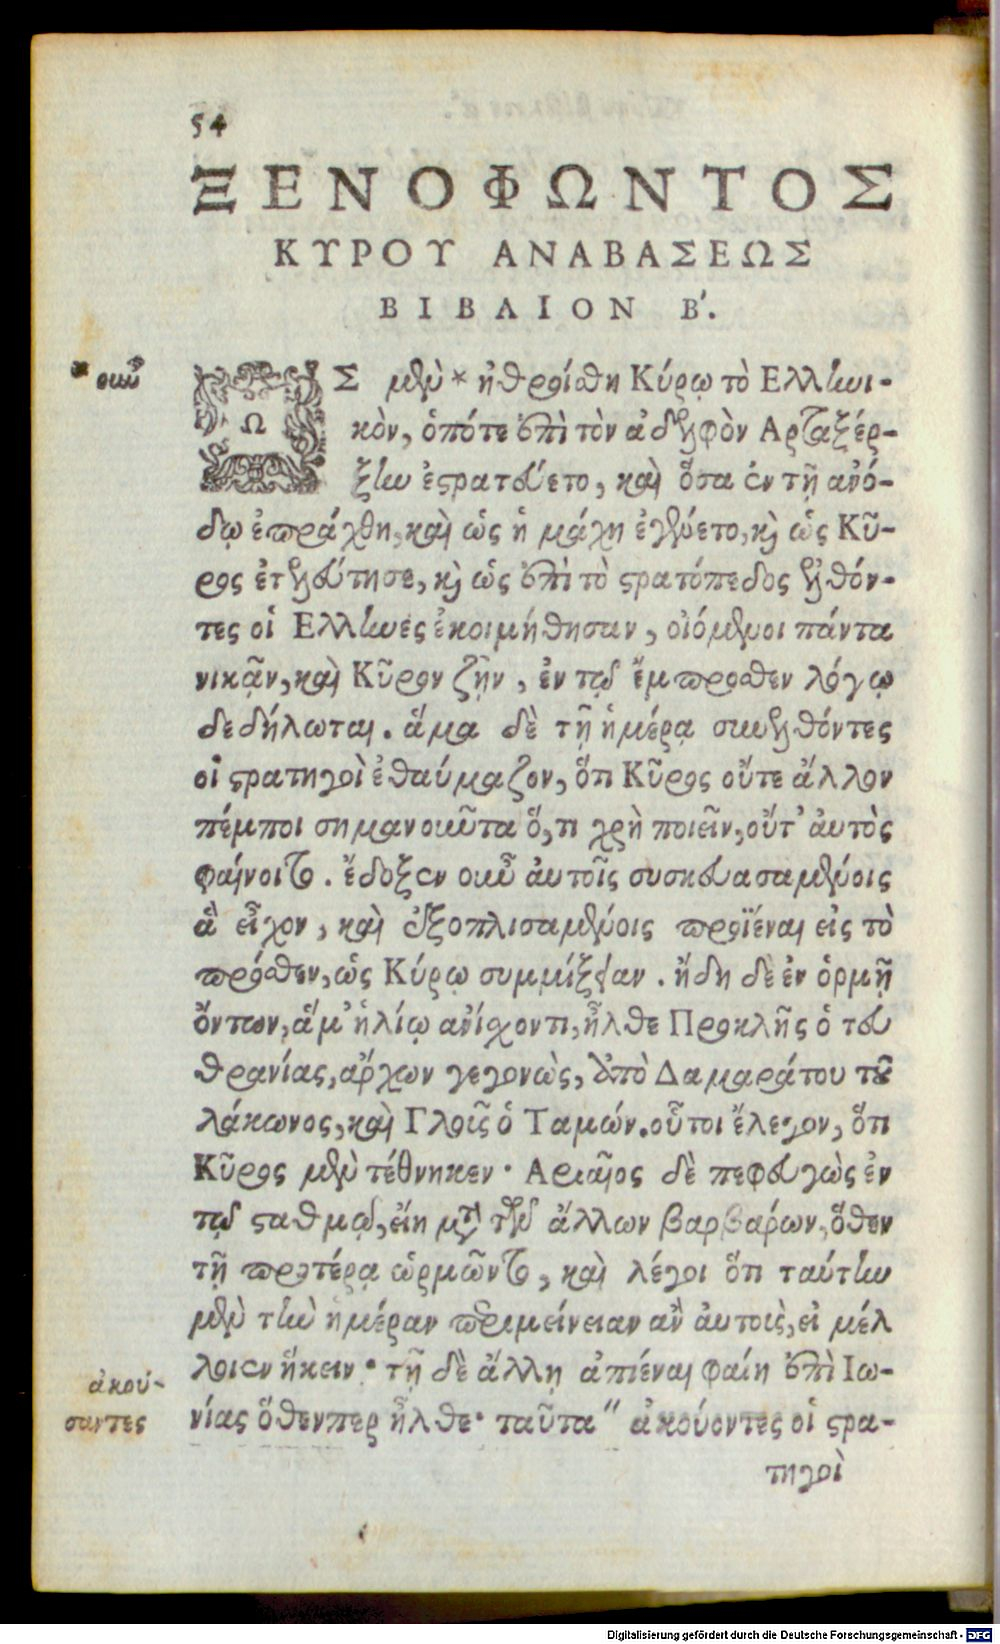 54
ΞΕΝΟΦΩΝΤΟΣ
ΚΥΡΟΥ ΑΝΑΒΑΣΕΩΣ
ΒΙΒΛΙΟΝ Β'.
* οὖν
ΩΣ μὲν * ἠθροίσθη Κύρῳ τὸ Ελλίωι-
κὸν, ὁπότε ἐπὶ τὸν ἀδελφὸν Αρταξέρ-
ξίω ἐστρατεύετο, καὶ ὅσα ἐν τῇ ἀνό-
δῳ ἐπράχθη, καὶ ὡς ἡ μάχη ἐγένετο, κὶ ὡς Κῦ-
ρος ἐτελεύτησε, κὶ ὡς ἐπὶ τὸ στρατόπεδος ἐλθόν-
τες οἱ Ελλίωες ἐκοιμήθησαν, οἰόμενοι πάντα
νικᾷν, καὶ Κῦρον ζῇν, ἐν τῷ ἔμπροσθεν λόγῳ
δεδήλωται. ἅμα δὲ τῇ ἡμέρᾳ συνελθόντες
οἱ στρατηγοὶ ἐθαύμαζον, ὅτι Κῦρος οὔτε ἄλλον
πέμποι σημανοῦντα ὅ, τι χρὴ ποιεῖν, οὔτ' ἀυτὸς
φαίνοιτο. ἔδοξεν οὖν ἀυτοῖς συσκευασαμένοις
ἃ εἶχον, καὶ ἐξοπλισαμένοις προϊέναι εἰς τὸ
πρόσθεν, ὡς Κύρῳ συμμίξειαν. ἤδη δὲ ἐν ὁρμῇ
ὄντων, ἅμ' ἡλίῳ ἀνίσχοντι, ἦλθε Προκλῆς ὁ τευ
θρανίας, ἄρχων γεγονὼς, ἀπὸ Δαμαράτου τοῦ
λάκωνος, καὶ Γλοῖς ὁ Ταμών. οὗτοι ἔλεγον, ὅτι
Κῦρος μὲν τέθνηκεν· Αριαῖος δὲ πεφευγὼς ἐν
τῷ σταθμῷ, εἴη μετὰ τῶν ἄλλων βαρβάρων, ὅθεν
τῇ προτέρᾳ ὡρμῶντο, καὶ λέγοι ὅτι ταύτίω
μὲν τίω ἡμέραν περιμείνειαν ἂν ἀυτοὶς, εἰ μέλ
λοιεν ἥκειν· τῇ δὲ ἄλλῃ ἀπιέναι φαίη ἐπὶ Ιω-
νίας ὅθενπερ ἦλθε· ταῦτα " ἀκούοντες οἱ στρα-
ἀκού-
σαντες
τηγοὶ
Digitalisierung gefördert durch die Deutsche Forschungsgemeinschaft - DFG